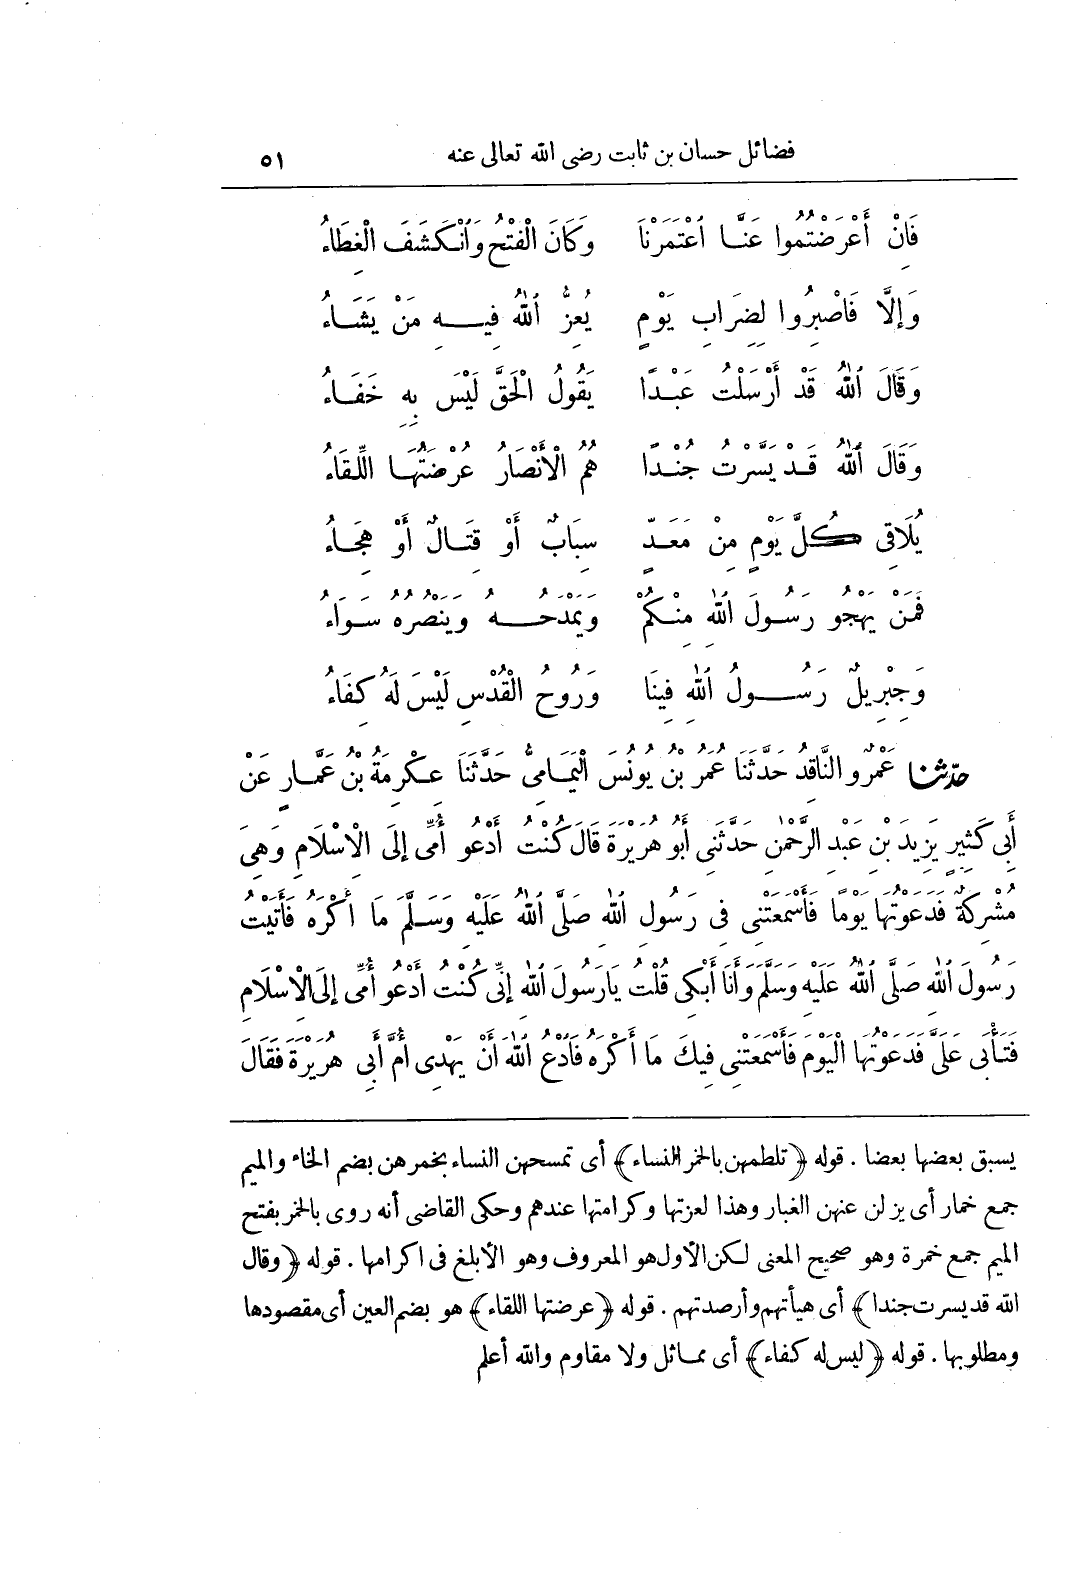 فضائل حسان بن ثابت رضى الله تعالى عنه ٥١
فَانْ أَعْرَضْتُمُوا عَنَّا اعْتَمَرْنَا وَكَانَ الْفَتْحُ وَانْكَشَفَ الْغِطَاءُ
وَإِلَّا فَاصْبِرُوا لِضِرَابِ يَوْمٍ يُعِزُّ اللهُ فِيهِ مَنْ يَشَاءُ
وَقَالَ اللهُ قَدْ أَرْسَلْتُ عَبْدًا يَقُولُ الْحَقَّ لَيْسَ بِهِ خَفَاءُ
وَقَالَ اللهُ قَدْ يَسَّرْتُ جُنْدًا هُمُ الْأَنْصَارُ عُرْضَتُهَا اللِّقَاءُ
يُلَاقِى كُلَّ يَوْمٍ مِنْ مَعَدٍّ سِبَابٌ أَوْ قِتَالٌ أَوْ هِجَاءُ
فَمَنْ يَهْجُو رَسُولَ اللهِ مِنْكُمْ وَيَمْدَحُهُ وَيَنْصُرُهُ سَوَاءُ
وَجِبْرِيلٌ رَسُولُ اللهِ فِينَا وَرُوحُ الْقُدْسِ لَيْسَ لَهُ كِفَاءُ
حدّثنا عَمْرٌو النَّاقِدُ حَدَّثَنَا عُمَرُ بْنُ يُونُسَ الْيَمَامِىُّ حَدَّثَنَا عِكْرِمَةُ بْنُ عَمَّارٍ عَنْ
أَبِى كَثِيرٍ يَزِيدَ بْنِ عَبْدِ الرَّحْمٰنِ حَدَّثَنِى أَبُو هُرَيْرَةَ قَالَ كُنْتُ أَدْعُو أُمِّى إِلَى الْاِسْلَامِ وَهِىَ
مُشْرِكَةٌ فَدَعَوْتُهَا يَوْمًا فَأَسْمَعَتْنِى فِى رَسُولِ اللهِ صَلَّى اللهُ عَلَيْهِ وَسَلَّمَ مَا أَكْرَهُ فَأَتَيْتُ
رَسُولَ اللهِ صَلَّى اللهُ عَلَيْهِ وَسَلَّمَ وَأَنَا أَبْكِى قُلْتُ يَارَسُولَ اللهِ إِنِّى كُنْتُ أَدْعُو أُمِّى إِلَى الْاِسْلَامِ
فَتَأْبَى عَلَىَّ فَدَعَوْتُهَا الْيَوْمَ فَأَسْمَعَتْنِى فِيكَ مَا أَكْرَهُ فَادْعُ اللهَ أَنْ يَهْدِى أُمَّ أَبِى هُرَيْرَةَ فَقَالَ
يسبق بعضها بعضا . قوله ﴿تلطمهن بالخمر النساء﴾ أى تمسحهن النساء بخمرهن بضم الخاء والميم
جمع خمار أى يزلن عنهن الغبار وهذا لعزتها وكرامتها عندهم وحكى القاضى أنه روى بالخمر بفتح
الميم جمع خمرة وهو صحيح المعنى لكن الأول هو المعروف وهو الأبلغ فى اكرامها . قوله ﴿وقال
الله قد يسرت جندا﴾ أى هيأتهم وأرصدتهم . قوله ﴿عرضتها اللقاء﴾ هو بضم العين أى مقصودها
ومطلوبها . قوله ﴿ليس له كفاء﴾ أى مماثل ولا مقاوم والله أعلم